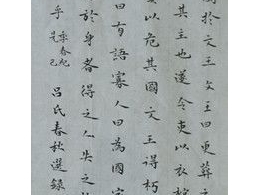 於文王文王曰更葬
其主也遂令吏以衣棺
以危其國文王得朽
曰有語寡人曰為國家
於身者得之人失之
乎 季春紀 先己 呂氏春秋選錄